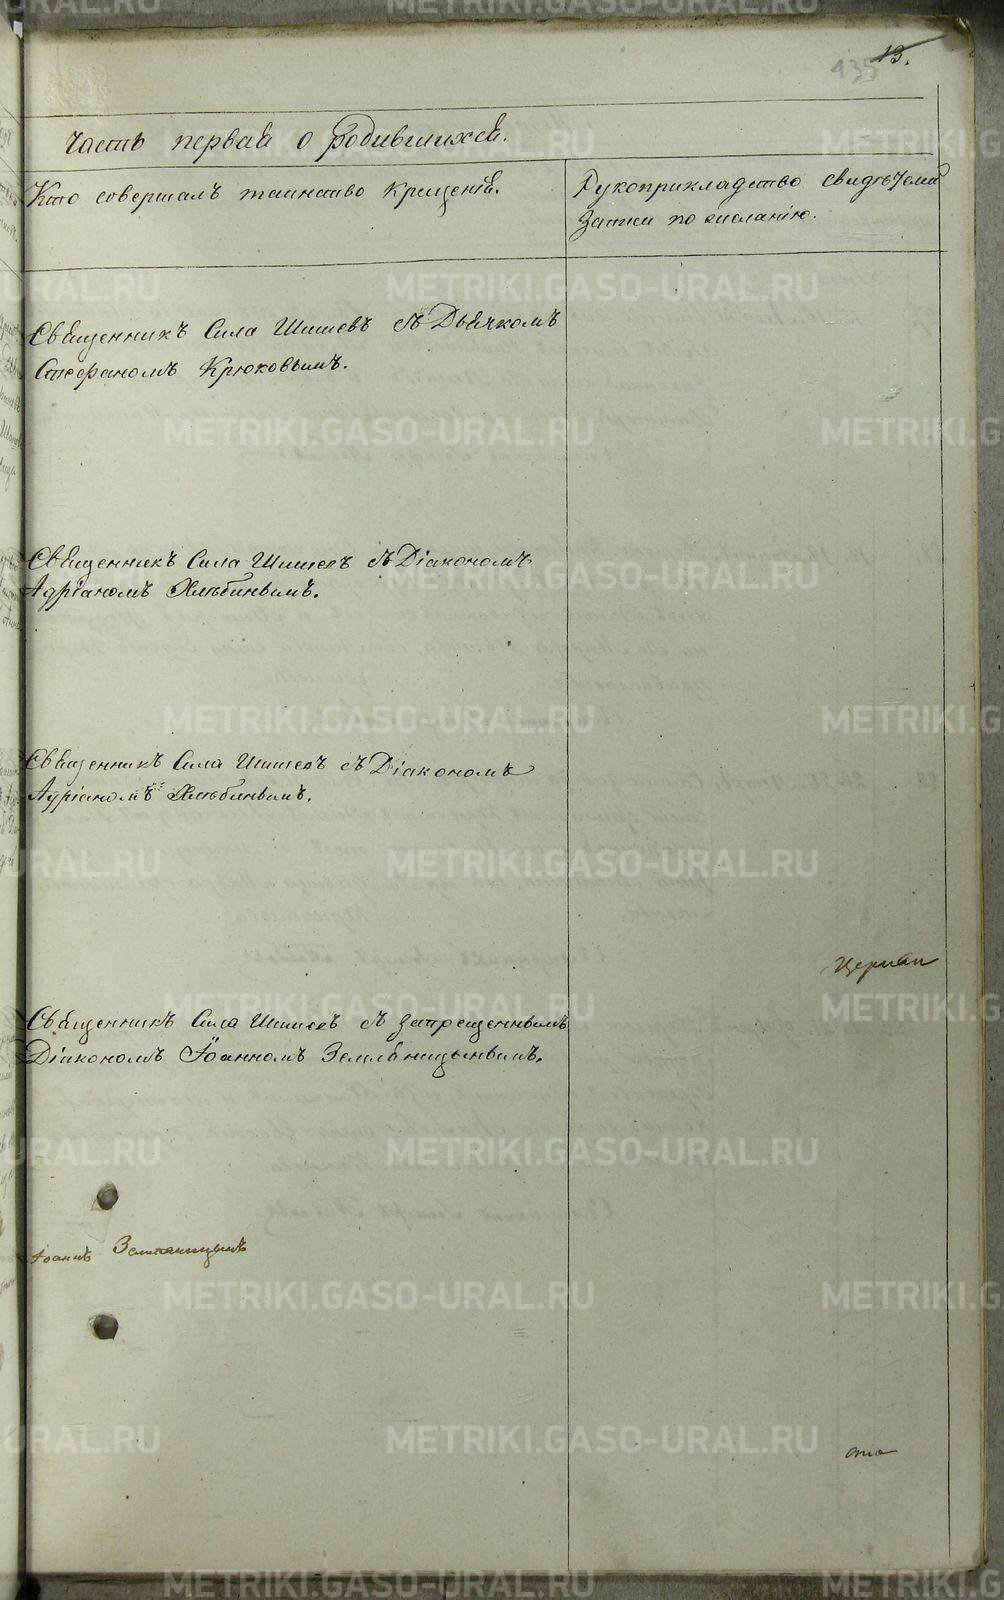 13.
435
Часть первая о родившихся.
Кто совершалъ таинство крещенія.
Рукоприкладство свидѣтелей
записи по желанію.
Священникъ Сила Шишевъ съ Дьячкомъ
Стефаномъ Крюковымъ.
Священникъ Сила Шишевъ съ Діакономъ
Адріаномъ Хлѣбинымъ.
Священникъ Сила Шишевъ съ Діакономъ
Адріаномъ Хлѣбинымъ.
Священникъ Сила Шишевъ съ запрещеннымъ
Діакономъ Іоанномъ Земляницынымъ.
Іоаннъ Земляницынъ
METRIKI.GASO-URAL.RU